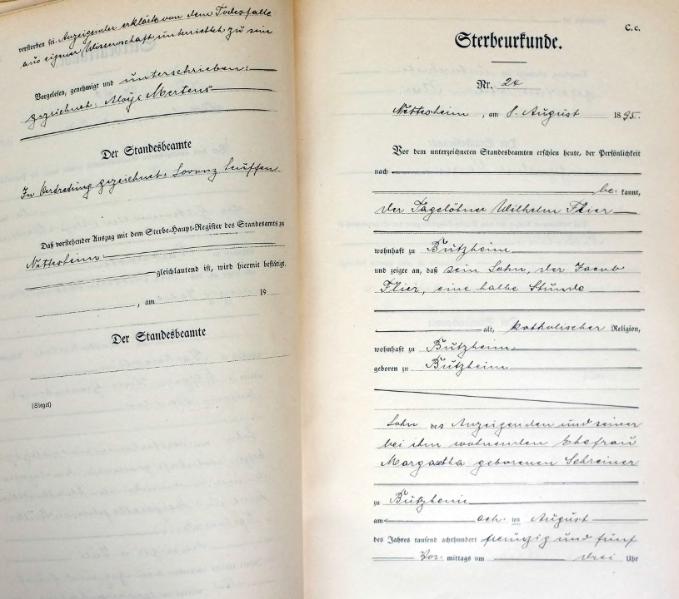 verstorben sei. Anzeigender erklärte von dem Todesfalle
aus eigener Wissenschaft unterrichtet zu sein
Vorgelesen, genehmigt und unterschrieben:
gezeichnet: Aloys Mertens
Der Standesbeamte
In Vertretung gezeichnet: Lorenz
Daß vorstehender Auszug mit dem Sterbe-Haupt-Register des Standesamts zu
Nettesheim
gleichlautend ist, wird hiermit bestätigt.
, am 19
Der Standesbeamte
(Siegel)
C. c.
Sterbeurkunde.
Nr. 20
Nettesheim, am 8. August 1895.
Vor dem unterzeichneten Standesbeamten erschien heute, der Persönlichkeit
nach
be kannt,
der Tagelöhner Wilhelm Flier
wohnhaft zu Butzheim
und zeigte an, daß sein Sohn, der Jacob
Flier, eine halbe Stunde
alt, katholischer Religion,
wohnhaft zu Butzheim
geboren zu Butzheim
Sohn des Anzeigenden und seiner
bei ihm wohnenden Ehefrau
Margaretha geborenen Schreiner
zu Butzheim
am acht ten August
des Jahres tausend achthundert neunzig und fünf
Vor mittags um drei Uhr